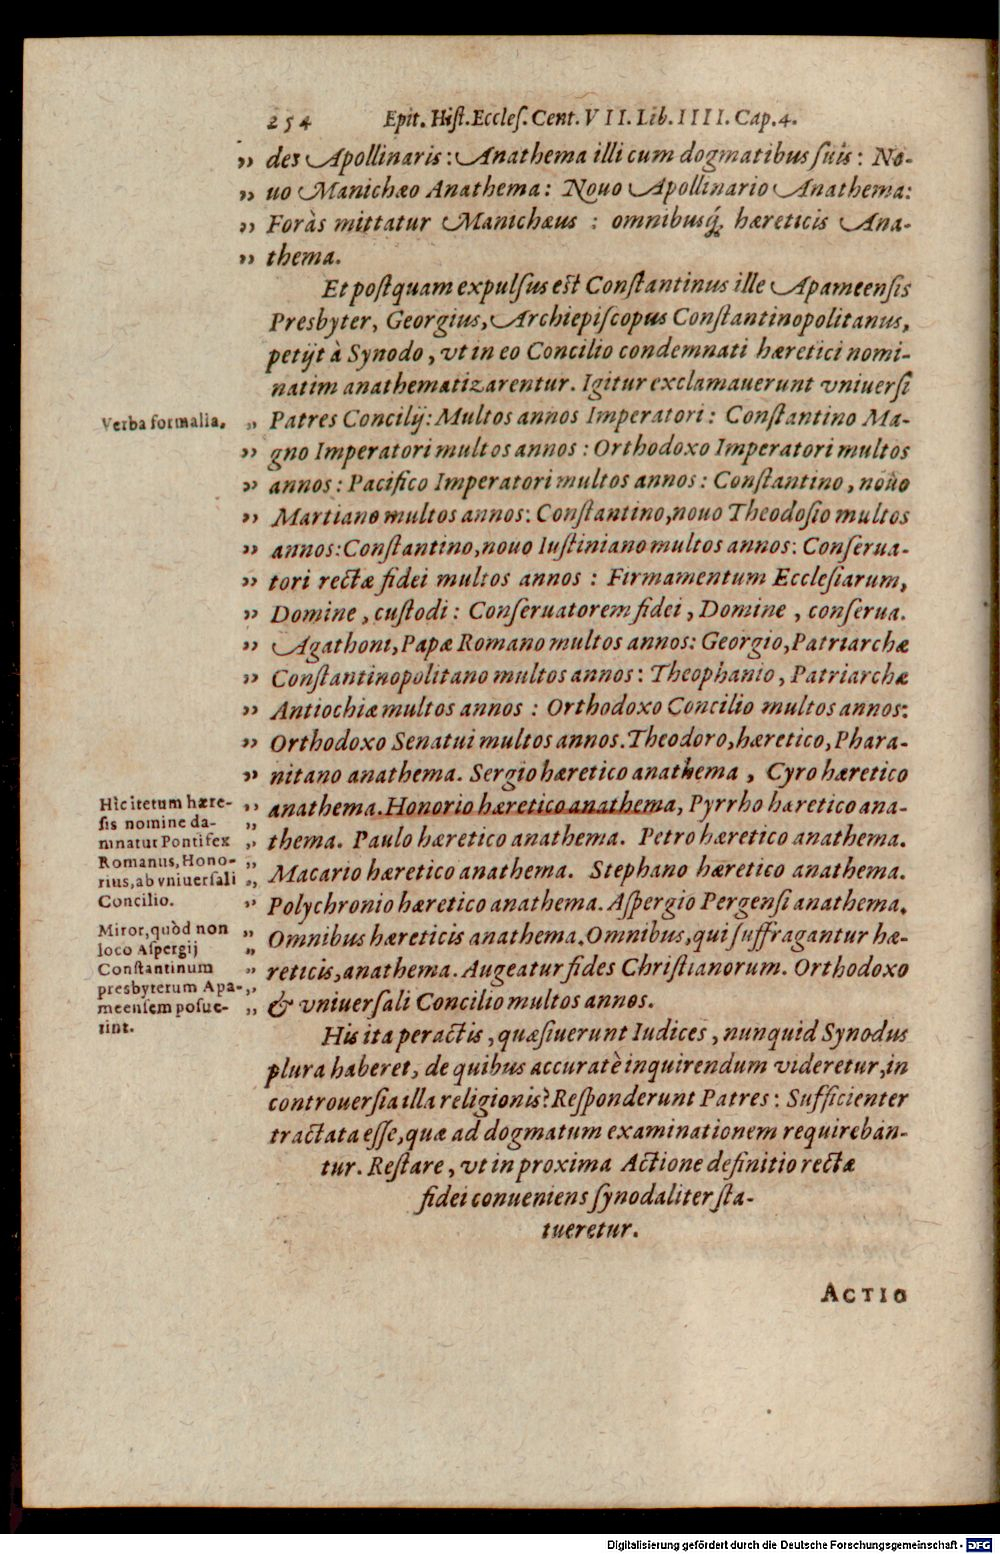 254 Epit. Hist. Eccles. Cent. VII. Lib. IIII. Cap. 4.
„ des Apollinaris: Anathema illi cum dogmatibus suis: No-
„ uo Manichæo Anathema: Nouo Apollinario Anathema:
„ Foràs mittatur Manichæus : omnibusq́; hæreticis Ana-
„ thema.
Et postquam expulsus est Constantinus ille Apameensis
Presbyter, Georgius, Archiepiscopus Constantinopolitanus,
petijt à Synodo, vt in eo Concilio condemnati hæretici nomi-
natim anathematizarentur. Igitur exclamauerunt vniuersi
Verba formalia. „ Patres Concilij: Multos annos Imperatori: Constantino Ma-
„ gno Imperatori multos annos: Orthodoxo Imperatori multos
„ annos: Pacifico Imperatori multos annos: Constantino, nouo
„ Martiano multos annos: Constantino, nouo Theodosio multos
„ annos: Constantino, nouo Iustiniano multos annos: Conserua-
„ tori rectæ fidei multos annos : Firmamentum Ecclesiarum,
„ Domine, custodi: Conseruatorem fidei, Domine, conserua.
„ Agathoni, Papæ Romano multos annos: Georgio, Patriarchæ
„ Constantinopolitano multos annos: Theophanio, Patriarchæ
„ Antiochiæ multos annos : Orthodoxo Concilio multos annos:
„ Orthodoxo Senatui multos annos. Theodoro, hæretico, Phara-
„ nitano anathema. Sergio hæretico anathema, Cyro hæretico
„ anathema. Honorio hæretico anathema, Pyrrho hæretico ana-
„ thema. Paulo hæretico anathema. Petro hæretico anathema.
„ Macario hæretico anathema. Stephano hæretico anathema.
„ Polychronio hæretico anathema. Aspergio Pergensi anathema.
„ Omnibus hæreticis anathema. Omnibus, qui suffragantur hæ-
„ reticis, anathema. Augeatur fides Christianorum. Orthodoxo
„ & vniuersali Concilio multos annos.
Hìc iterum hære-
sis nomine da-
mnatur Pontifex
Romanus, Hono-
rius, ab vniuersali
Concilio.
Miror, quòd non
loco Aspergij
Constantinum
presbyterum Apa-
meensem posue-
rint.
His ita peractis, quæsiuerunt Iudices, nunquid Synodus
plura haberet, de quibus accuratè inquirendum videretur, in
controuersia illa religionis? Responderunt Patres: Sufficienter
tractata esse, quæ ad dogmatum examinationem requireban-
tur. Restare, vt in proxima Actione definitio rectæ
fidei conueniens synodaliter sta-
tueretur.
ACTIO
Digitalisierung gefördert durch die Deutsche Forschungsgemeinschaft - DFG